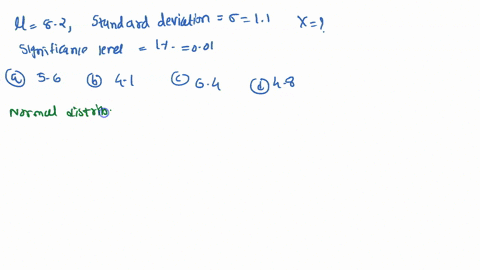 μ = 8.2, Standard deviation = σ = 1.1 X = ?
Significance level = 1%. = 0.01
(a) 5.6 (b) 4.1 (c) 6.4 (d) 4.8
Normal distrib